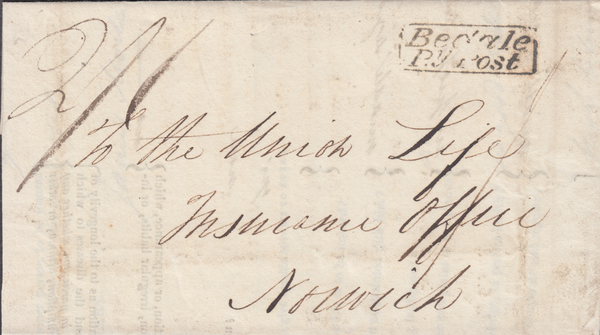 Bedale
Py Post
2/
To the Union Life
Insurance Office
Norwich